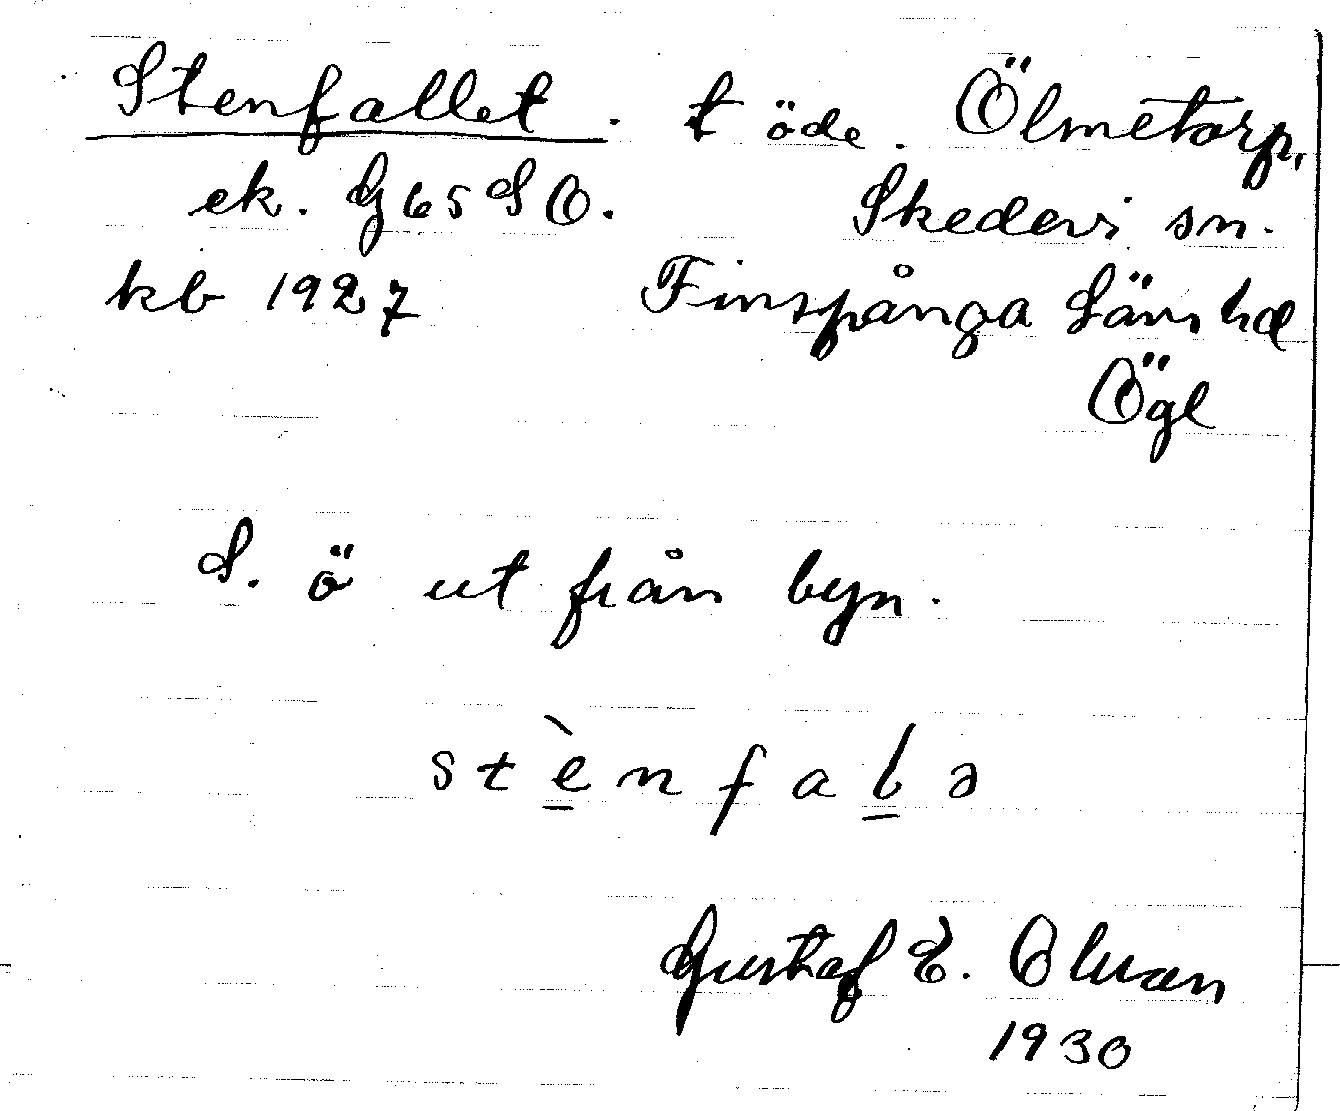 Stenfallet. t öde. Ölmetorp,
ek. G 65 S O. Skedevi sn.
kb 1927 Finspånga läns hd
Ögl
S. ö ut från byn.
stènfalə
Gustaf E. Olsson
1930